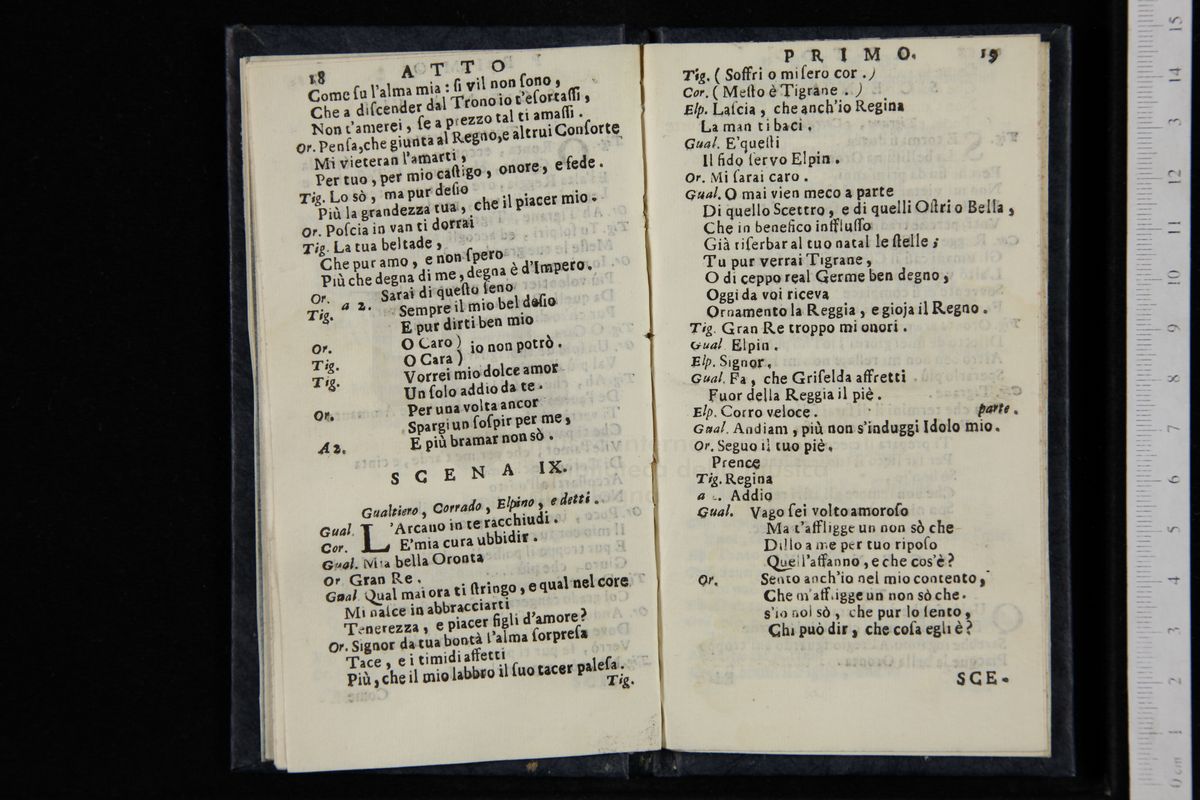 18 ATTO
Come ſu l'alma mia : ſi vil non ſono ,
Che a diſcender dal Trono io t'eſortaſſi ,
Non t'amerei , ſe a prezzo tal ti amaſſi .
Or. Penſa,che giunta al Regno,e altrui Conſorte
Mi vieteran l'amarti ,
Per tuo , per mio caſtigo , onore , e fede .
Tig. Lo sò , ma pur deſio
Più la grandezza tua , che il piacer mio .
Or. Poſcia in van ti dorrai
Tig. La tua beltade ,
Che pur amo , e non ſpero
Più che degna di me , degna è d'Impero .
Or. Sarai di queſto ſeno
Tig. a 2. Sempre il mio bel deſio
E pur dirti ben mio
Or. O Caro )
Tig. O Cara ) io non potrò .
Tig. Vorrei mio dolce amor
Un ſolo addio da te .
Or. Per una volta ancor
Spargi un ſoſpir per me ,
A 2. E più bramar non sò .
SCENA IX.
Gualtiero , Corrado , Elpino , e detti .
Gual. L'Arcano in te racchiudi .
Cor. E'mia cura ubbidir .
Gual. Mia bella Oronta
Or. Gran Re .
Gual. Qual mai ora ti ſtringo , e qual nel core
Mi naſce in abbracciarti
Tenerezza , e piacer figli d'amore ?
Or. Signor da tua bontà l'alma ſorpreſa
Tace , e i timidi affetti
Più , che il mio labbro il ſuo tacer paleſa .
Tig.
PRIMO. 19
Tig. ( Soffri o miſero cor . )
Cor. ( Meſto è Tigrane . . )
Elp. Laſcia , che anch'io Regina
La man ti baci .
Gual. E'queſti
Il fido ſervo Elpin .
Or. Mi ſarai caro .
Gual. O mai vien meco a parte
Di quello Scettro , e di quelli Oſtri o Bella ,
Che in benefico infſluſſo
Già riſerbar al tuo natal le ſtelle ;
Tu pur verrai Tigrane ,
O di ceppo real Germe ben degno ,
Oggi da voi riceva
Ornamento la Reggia , e gioja il Regno .
Tig. Gran Re troppo mi onori .
Gual. Elpin .
Elp. Signor .
Gual. Fa , che Griſelda affretti
Fuor della Reggia il piè .
Elp. Corro veloce . parte .
Gual. Andiam , più non s'induggi Idolo mio .
Or. Seguo il tuo piè .
Prence
Tig. Regina
a 2. Addio
Gual. Vago ſei volto amoroſo
Ma t'affligge un non sò che
Dillo a me per tuo ripoſo
Quell'affanno , e che cos'è ?
Or. Sento anch'io nel mio contento ,
Che m'affligge un non sò che .
s'io nol sò , che pur lo ſento ,
Chi può dir , che coſa egli è ?
SCE.